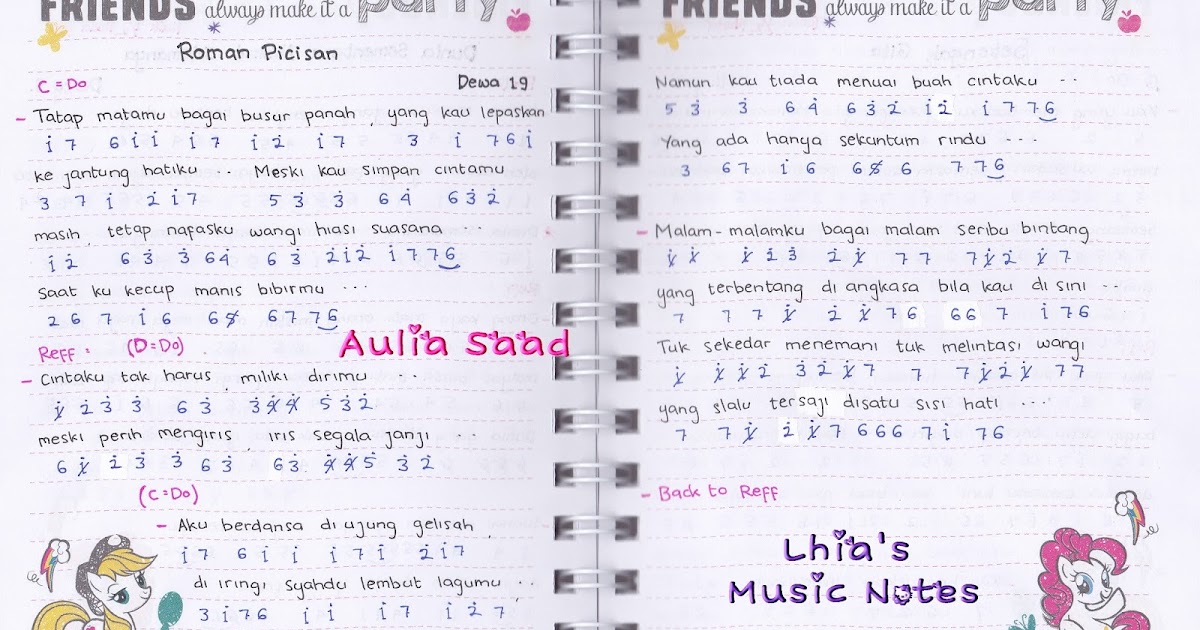 FRIENDS always make it a party
Roman Picisan
C = Do
Dewa 19
- Tatap matamu bagai busur panah, yang kau lepaskan
1̇ 7 6 1̇ 1̇ 1̇ 7 1̇ 2̇ 1̇ 7 3 1̇ 7 6 1̇
ke jantung hatiku ... Meski kau simpan cintamu
3 7 1̇ 2̇ 1̇ 7 5 3̇ 3̇ 6 4̇ 6 3̇ 2̇
masih, tetap nafasku wangi hiasi suasana ..
1̇ 2̇ 6 3̇ 3̇ 6 4̇ 6 3̇ 2̇ 1̇ 2̇ 1̇ 7 7 6
Saat ku kecup manis bibirmu ...
2 6 7 1̇ 6 6 5̸ 6 7 7 6
Reff : (D = Do)
Aulia Saad
- Cintaku tak harus miliki dirimu ...
1̸̇ 2̇ 3̇ 3̇ 6 3̇ 3̇ 4̸̇ 4̸̇ 5̇ 3̇ 2̇
meski perih mengiris, iris segala janji ..
6 1̸̇ 2̇ 3̇ 3̇ 6 3̇ 6 3̇ 4̸̇ 4̸̇ 5̇ 3̇ 2̇
(C = Do)
- Aku berdansa di ujung gelisah,
1̇ 7 6 1̇ 1̇ 1̇ 7 1̇ 2̇ 1̇ 7
di iringi syahdu lembut lagumu ..
3 1̇ 7 6 1̇ 1̇ 1̇ 7 1̇ 2̇ 7
FRIENDS always make it a party
Namun kau tiada menuai buah cintaku ..
5 3̇ 3̇ 6 4̇ 6 3̇ 2̇ 1̇ 2̇ 1̇ 7 7 6
Yang ada hanya sekuntum rindu ....
3 6 7 1̇ 6 6 5̸ 6 7 7 6
- Malam-malamku bagai malam seribu bintang
1̸̇ 1̸̇ 1̸̇ 2̇ 3̇ 2̇ 1̸̇ 7 7 7 1̸̇ 2̇ 1̸̇ 7
yang terbentang di angkasa bila kau di sini ..
7 7 7 1̸̇ 2̇ 1̸̇ 7 6 6 6 7 1̇ 7 6
Tuk sekedar menemani tuk melintasi wangi
1̸̇ 1̸̇ 1̸̇ 2̇ 3̇ 2̇ 1̸̇ 7 7 7 1̸̇ 2̇ 1̸̇ 7 7
yang slalu tersaji disatu sisi hati ...
7 7 1̸̇ 2̇ 1̸̇ 7 6 6 6 7 1̇ 7 6
- Back to Reff
Lhia's
Music Notes